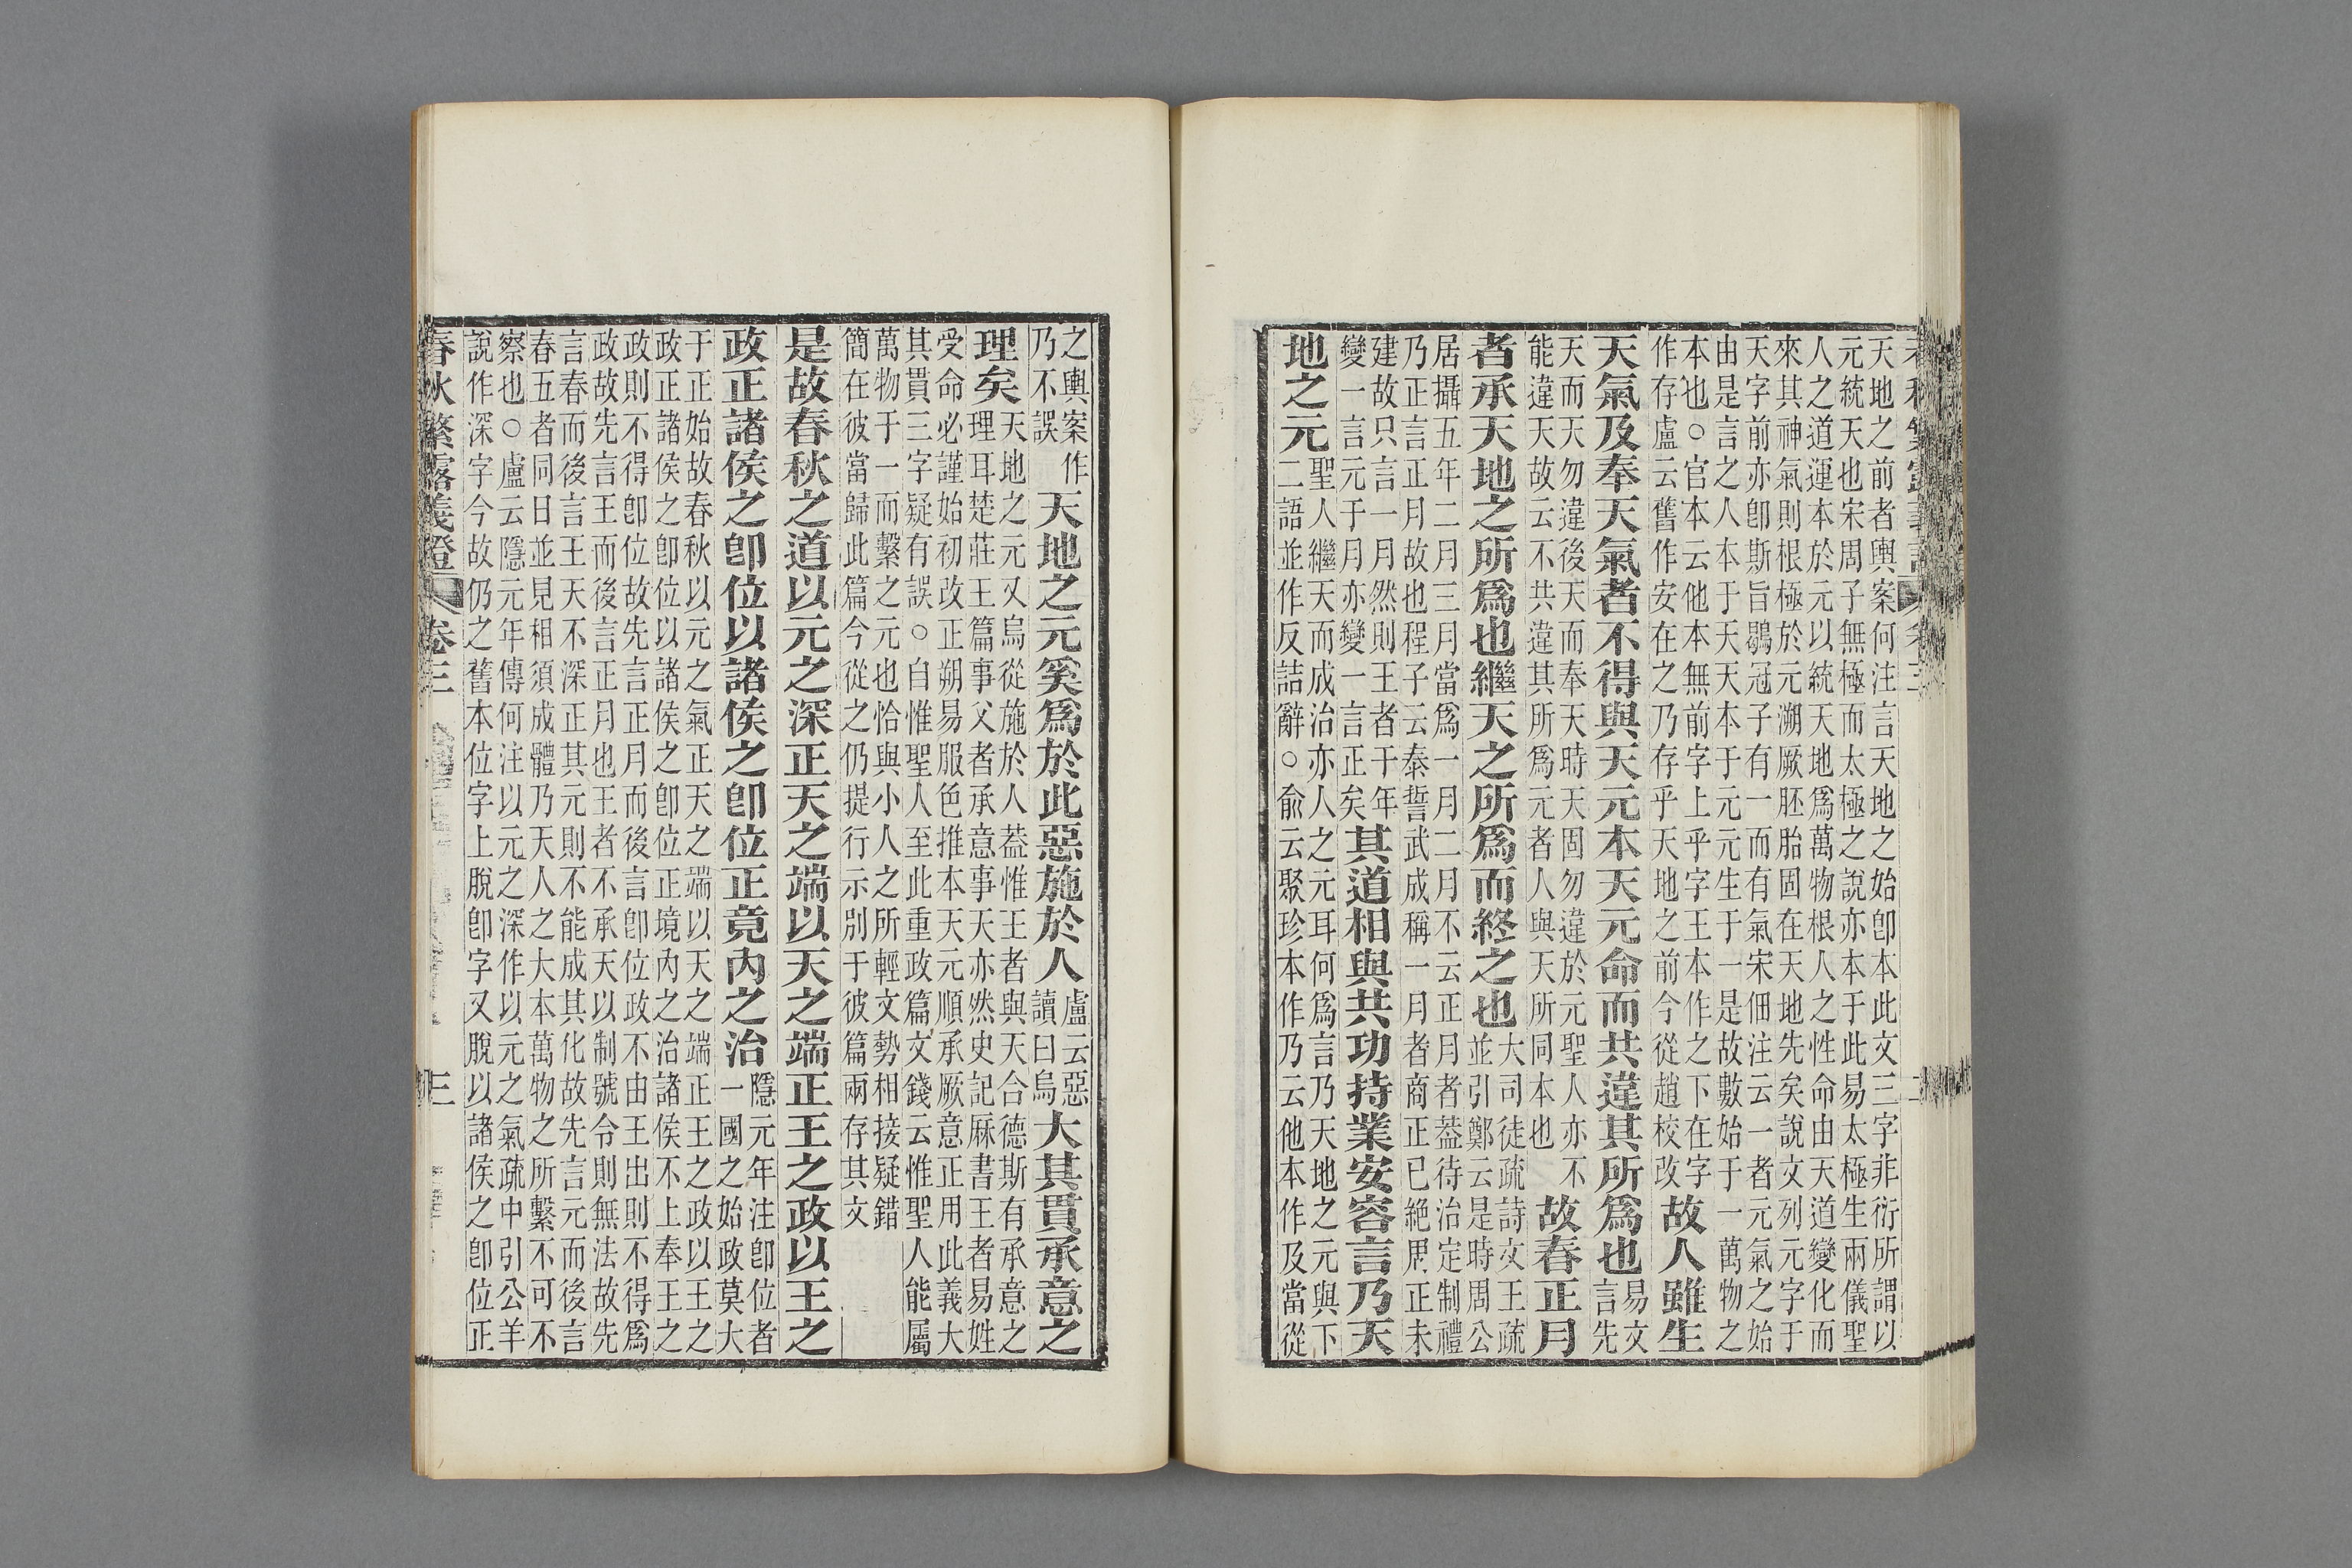 春秋繁露義證 卷三 二
天地之前者輿案何注言天地之始卽本此文三字非衍所謂以
元統天也宋周子無極而太極之說亦本于此易太極生兩儀聖
人之道運本於元以統天地爲萬物根人之性命由天道變化而
來其神氣則根極於元溯厥胚胎固在天地先矣說文列元字于
天字前亦卽斯旨鶡冠子有一而有氣宋佃注云一者元氣之始
由是言之人本于天天本于元元生于一是故數始于一萬物之
本也○官本云他本無前字上乎字王本作之下在字
作存盧云舊作安在之乃存乎天地之前今從趙校改
故人雖生
天氣及奉天氣者不得與天元本天元命而共違其所爲也
易文
言先
天而天勿違後天而奉天時天固勿違於元聖人亦不
能違天故云不共違其所爲元者人與天所同本也
故春正月
者承天地之所爲也繼天之所爲而終之也
大司徒疏詩文王疏
並引鄭云是時周公
居攝五年二月三月當爲一月二月不云正月者葢待治定制禮
乃正言正月故也程子云泰誓武成稱一月者商正已絕周正未
建故只言一月然則王者于年
變一言元于月亦變一言正矣
其道相與共功持業安容言乃天
地之元
聖人繼天而成治亦人之元耳何爲言乃天地之元與下
二語並作反詰辭○俞云聚珍本作乃云他本作及當從
之輿案作
乃不誤
天地之元奚爲於此惡施於人
盧云惡
讀曰烏
大其貫承意之
理矣
天地之元又烏從施於人葢惟王者與天合德斯有承意之
理耳楚莊王篇事父者承意事天亦然史記厤書王者易姓
受命必謹始初改正朔易服色推本天元順承厥意正用此義大
其貫三字疑有誤○自惟聖人至此重政篇文錢云惟聖人能屬
萬物于一而繫之元也恰與小人之所輕文勢相接疑錯
簡在彼當歸此篇今從之仍提行示別于彼篇兩存其文
是故春秋之道以元之深正天之端以天之端正王之政以王之
政正諸侯之卽位以諸侯之卽位正竟內之治
隱元年注卽位者
一國之始政莫大
于正始故春秋以元之氣正天之端以天之端正王之政以王之
政正諸侯之卽位以諸侯之卽位正境內之治諸侯不上奉王之
政則不得卽位故先言正月而後言卽位政不由王出則不得爲
政故先言王而後言正月也王者不承天以制號令則無法故先
言春而後言王天不深正其元則不能成其化故先言元而後言
春五者同日並見相須成體乃天人之大本萬物之所繫不可不
察也○盧云隱元年傳何注以元之深作以元之氣疏中引公羊
說作深字今故仍之舊本位字上脫卽字又脫以諸侯之卽位正
春秋繁露義證 卷三 三